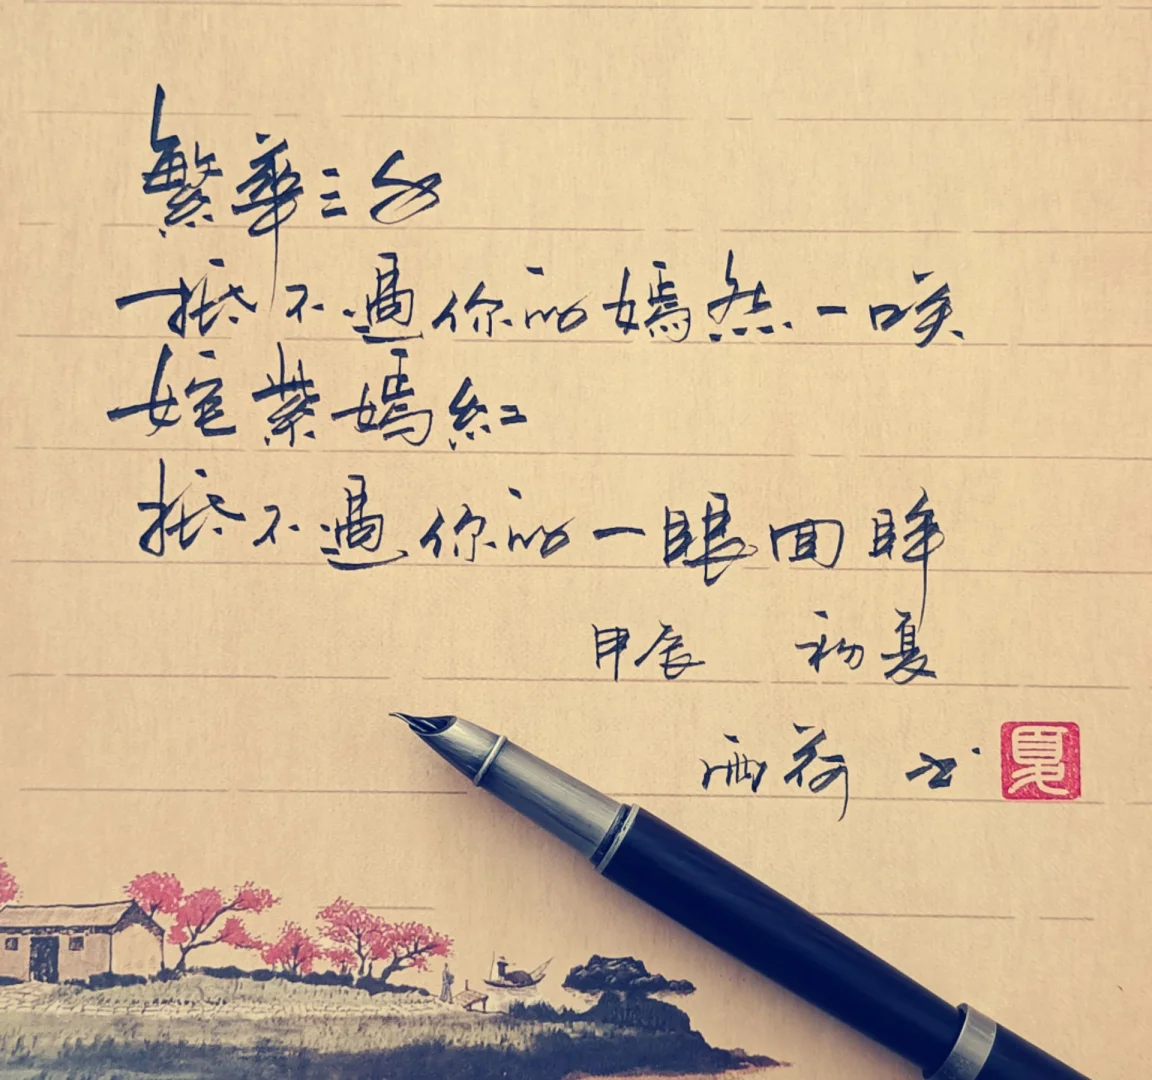 繁華三千
抵不過你的嫣然一咲
姹紫嫣紅
抵不過你的一眼回眸
甲辰 初夏
雨荷 书
夏